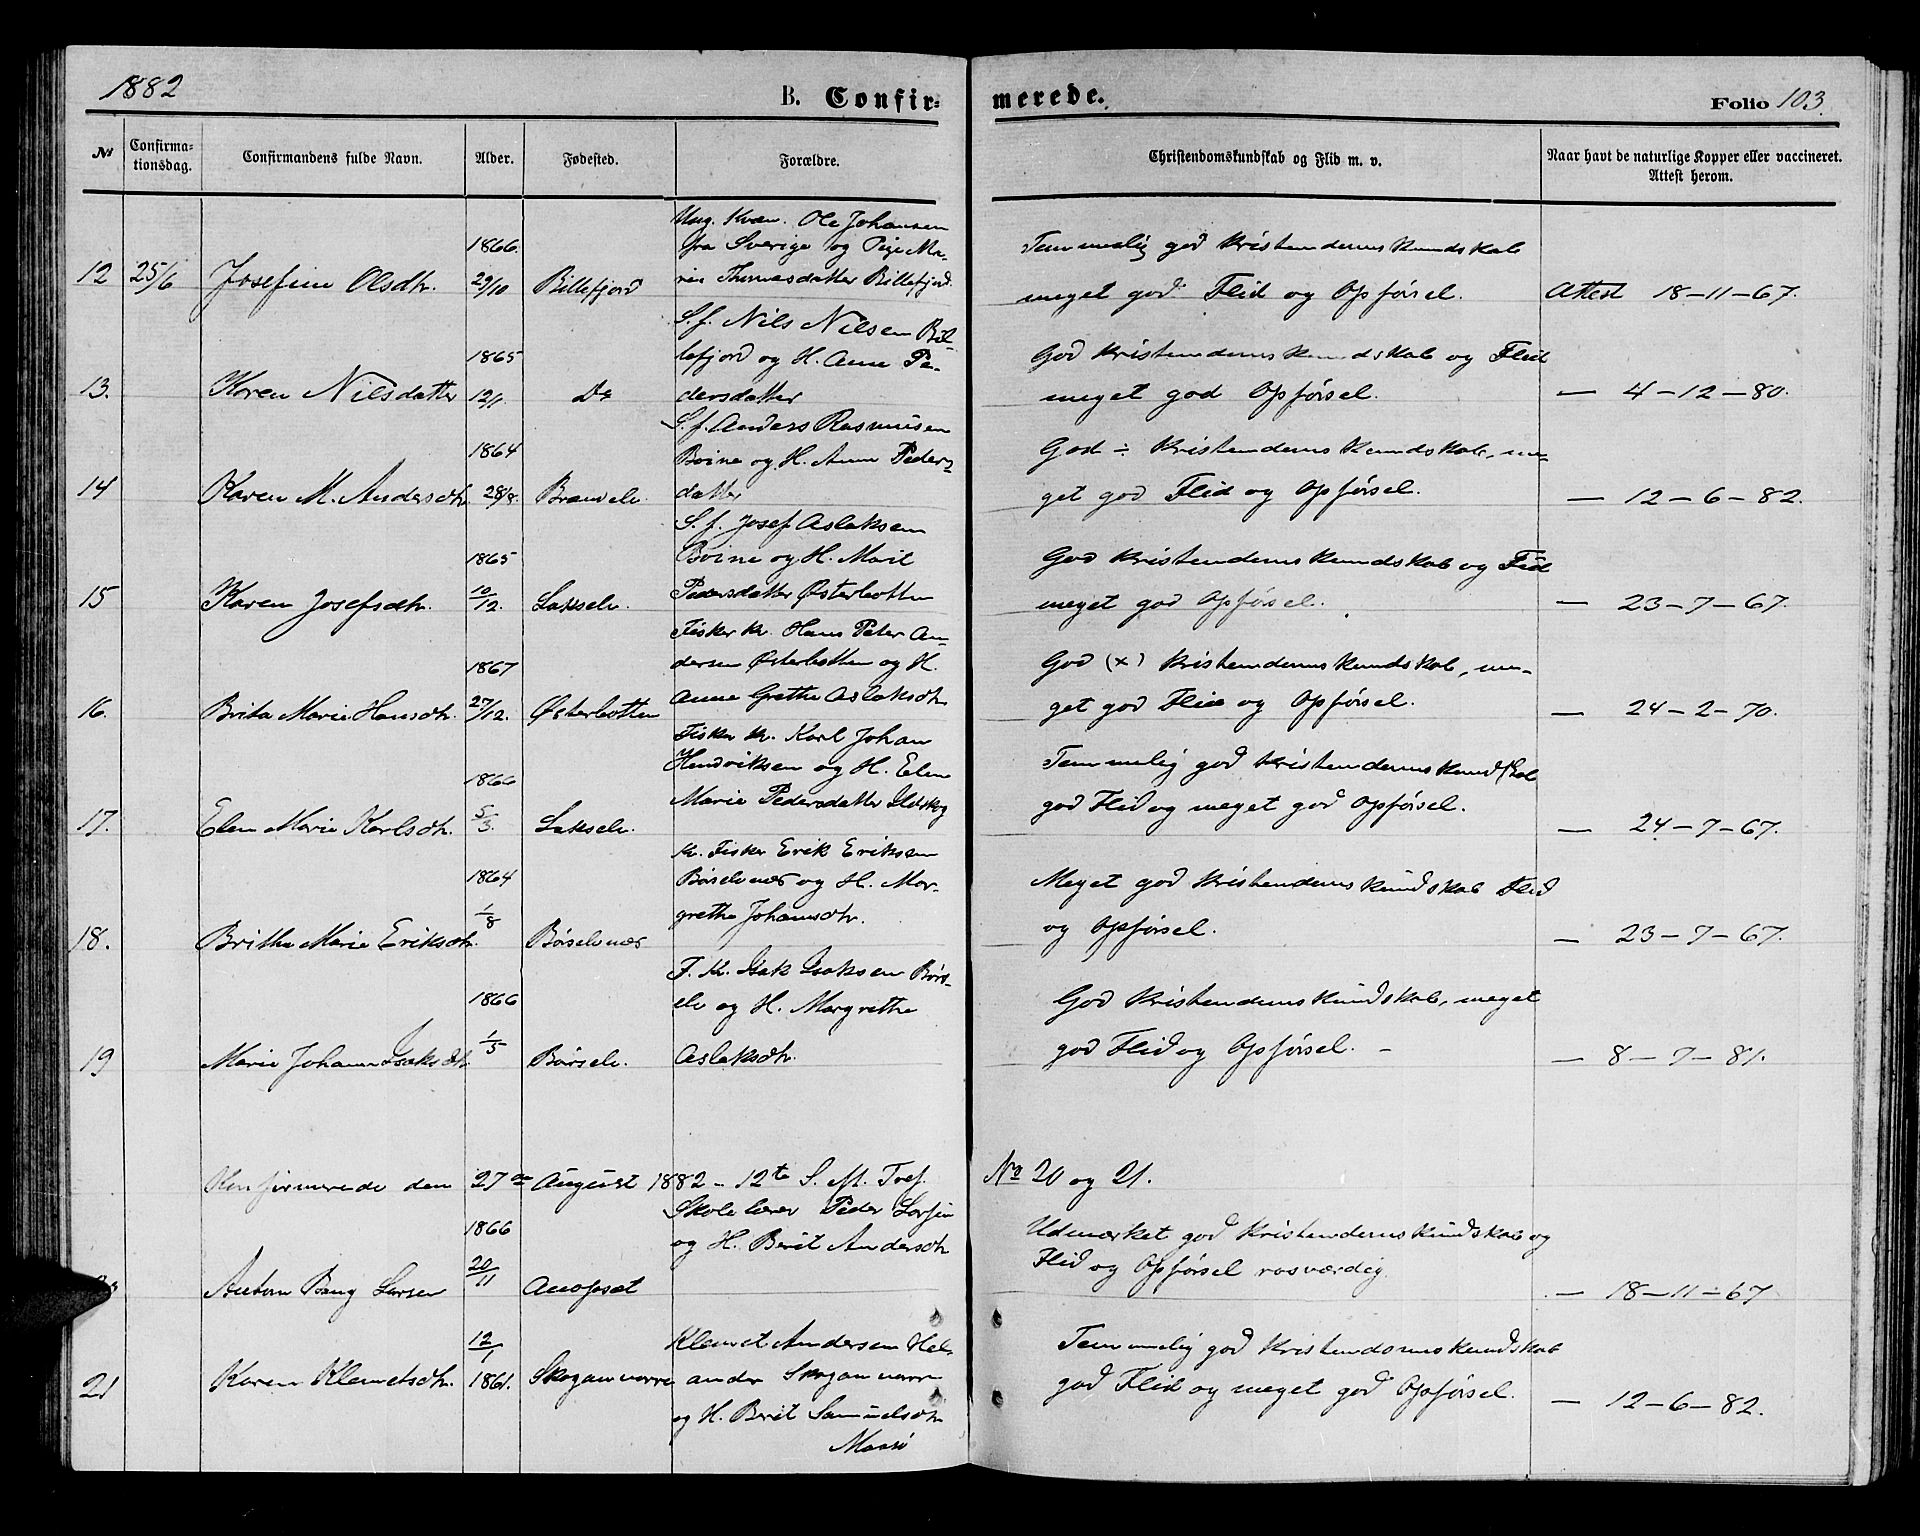 1882
B. Confir-
merede.
Folio 103.
No
Confirma-
tionsdag.
Confirmandens fulde Navn.
Alder.
Fødested.
Forældre.
Christendomskundskab og Flid m. v.
Naar havt de naturlige Kopper eller vaccineret.
Attest herom.
Ung. Kvæn. Ole Johansen
1866. fra Sverige og Pige Ma-
Temmelig god Kristendomskundskab
12 25/6 Josefine Olsdtr. 29/10 Billefjord rie Thomasdatter Billefjord.
meget god Flid og Opførsel. Attest 18-11-67.
S. f. Nils Nilsen Bil-
1865 lefjord og H. Anne Pe-
God Kristendomskundskab og Flid
13. Karen Nilsdatter 12/1. Do dersdatter
meget god Opførsel. — 4-12-80.
S. f. Anders Rasmusen
1864 Boine og H. Anne Peders-
God ÷ Kristendomskundskab, me-
14 Karen M. Andersdtr. 28/8. Brandelv. datter
get god Flid og Opførsel. — 12-6-82.
S. f. Josef Aslaksen
1865 Boine og H. Marit
God Kristendomskundskab og Flid
15 Karen Josefsdtr. 10/12. Lakselv. Pedersdatter Østerbotten
meget god Opførsel. — 23-7-67.
Fisker kv. Hans Peter An-
1867 dersen Østerbotten og H.
God (x) Kristendomskundskab, me-
16. Brita Marie Hansdtr. 27/12. Østerbotten Anne Grethe Aslaksdtr.
get god Flid og Opførsel. — 24-2-70.
Fisker kv. Karl Johan
1866 Hendriksen og H. Elen
Temmelig god Kristendomskundskab
Marie Pedersdatter Ildskog
17. Elen Marie Karlsdtr. 5/3. Lakselv.
god Flid og meget god Opførsel. — 24-7-67.
kv. Fisker Erik Eriksen
1864 Børselvnæs og H. Mar-
Meget god Kristendomskundskab Flid
grethe Johansdtr.
18. Brithe Marie Eriksdtr. 1/8 Børselvnæs
og Opførsel. — 23-7-67.
F. Kv. Isak Isaksen Børs-
1866 elv og H. Margrethe
God Kristendomskundskab, meget
19 Marie Johanne Isaksdtr. 1/5 Børselv. Aslaksdtr.
god Flid og Opførsel. — — 8-7-81.
Konfirmerede den 27de August 1882 - 12te S. e. M. Tref.
No 20 og 21.
1866 Skolelærer Peder Larsen
Udmærket god Kristendomskundskab og
og H. Berit Andersdtr
Anton Bang Larsen 20/11 Anopset
Flid og Opførsel rosværdig — 18-11-67
12/1 Klemet Andersen Hel-
Temmelig god Kristendomskundskab
21 Karen Klemetsdtr. 1861. Skoganvarre ander Skoganvarre
god Flid og meget god Opførsel. — 12-6-82.
og H. Berit Samuelsdtr
Maasø